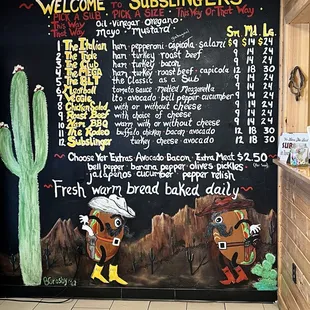 WELCOME TO SUBSLINGERS
PICK A SUB PICK A SIZE This Way Or That Way
This Way Oil-vinegar-oregano
That Way Mayo - Mustard
Sm. Md. Lg.
1 The Italian ham-pepperoni-capicola-salami $9 $14 $24
2 The Ride ham turkey roast beef 9 14 24
3 The Club ham turkey bacon 9 14 24
4 The MEGA ham turkey roast beef-capicola 12 18 30
5 The BLT the Classic as a sub 9 14 24
6 Meatball tomato sauce melted Mozzarella 9 14 24
7 Veggie lto-avocado bell pepper cucumber 9 14 24
8 Chicken Salad with or without cheese 9 14 24
9 Roast Beef with choice of cheese 9 14 24
10 BBQ warm with or without cheese 9 14 24
11 The Rodeo buffalo chicken bacon avocado 12 18 30
12 Subslinger 12 18 30
Choose Yer Extras Avocado Bacon-Extra Meat $2.50
bell pepper banana pepper olives pickles
jalapenos cucumber pepper relish
Fresh warm bread baked daily